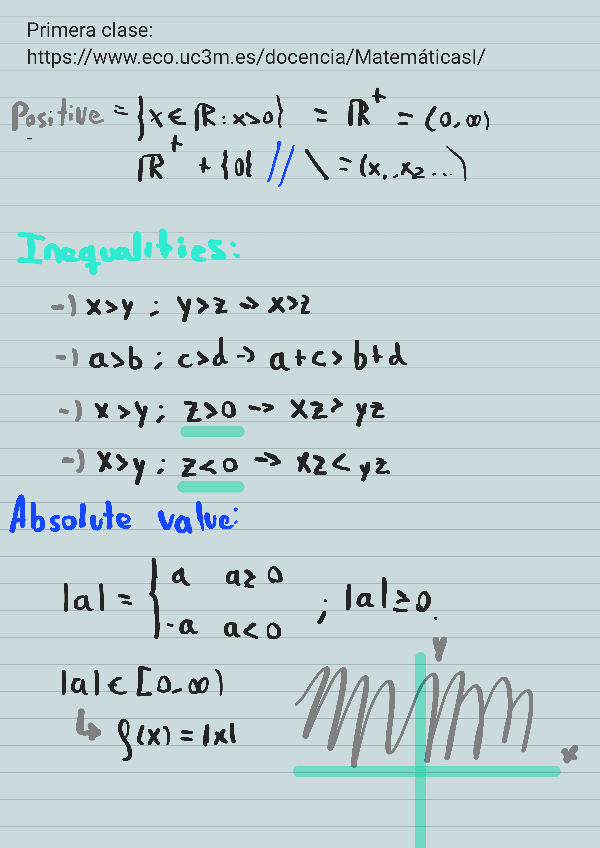 Primera clase:
https://www.eco.uc3m.es/docencia/MatemáticasI/
Positive = {x ∈ ℝ : x>0} = ℝ⁺ = (0, ∞)
ℝ⁺ + {0} // \ = (x₁, x₂ ...)
Inequalities:
-) x>y ; y>z -> x>z
-) a>b ; c>d -> a+c > b+d
-) x>y ; z>0 -> xz > yz
-) x>y ; z<0 -> xz < yz
Absolute value:
|a| = { a a≥0
-a a<0 ; |a| ≥ 0.
|a| ∈ [0, ∞)
↳ f(x) = |x|
y
x